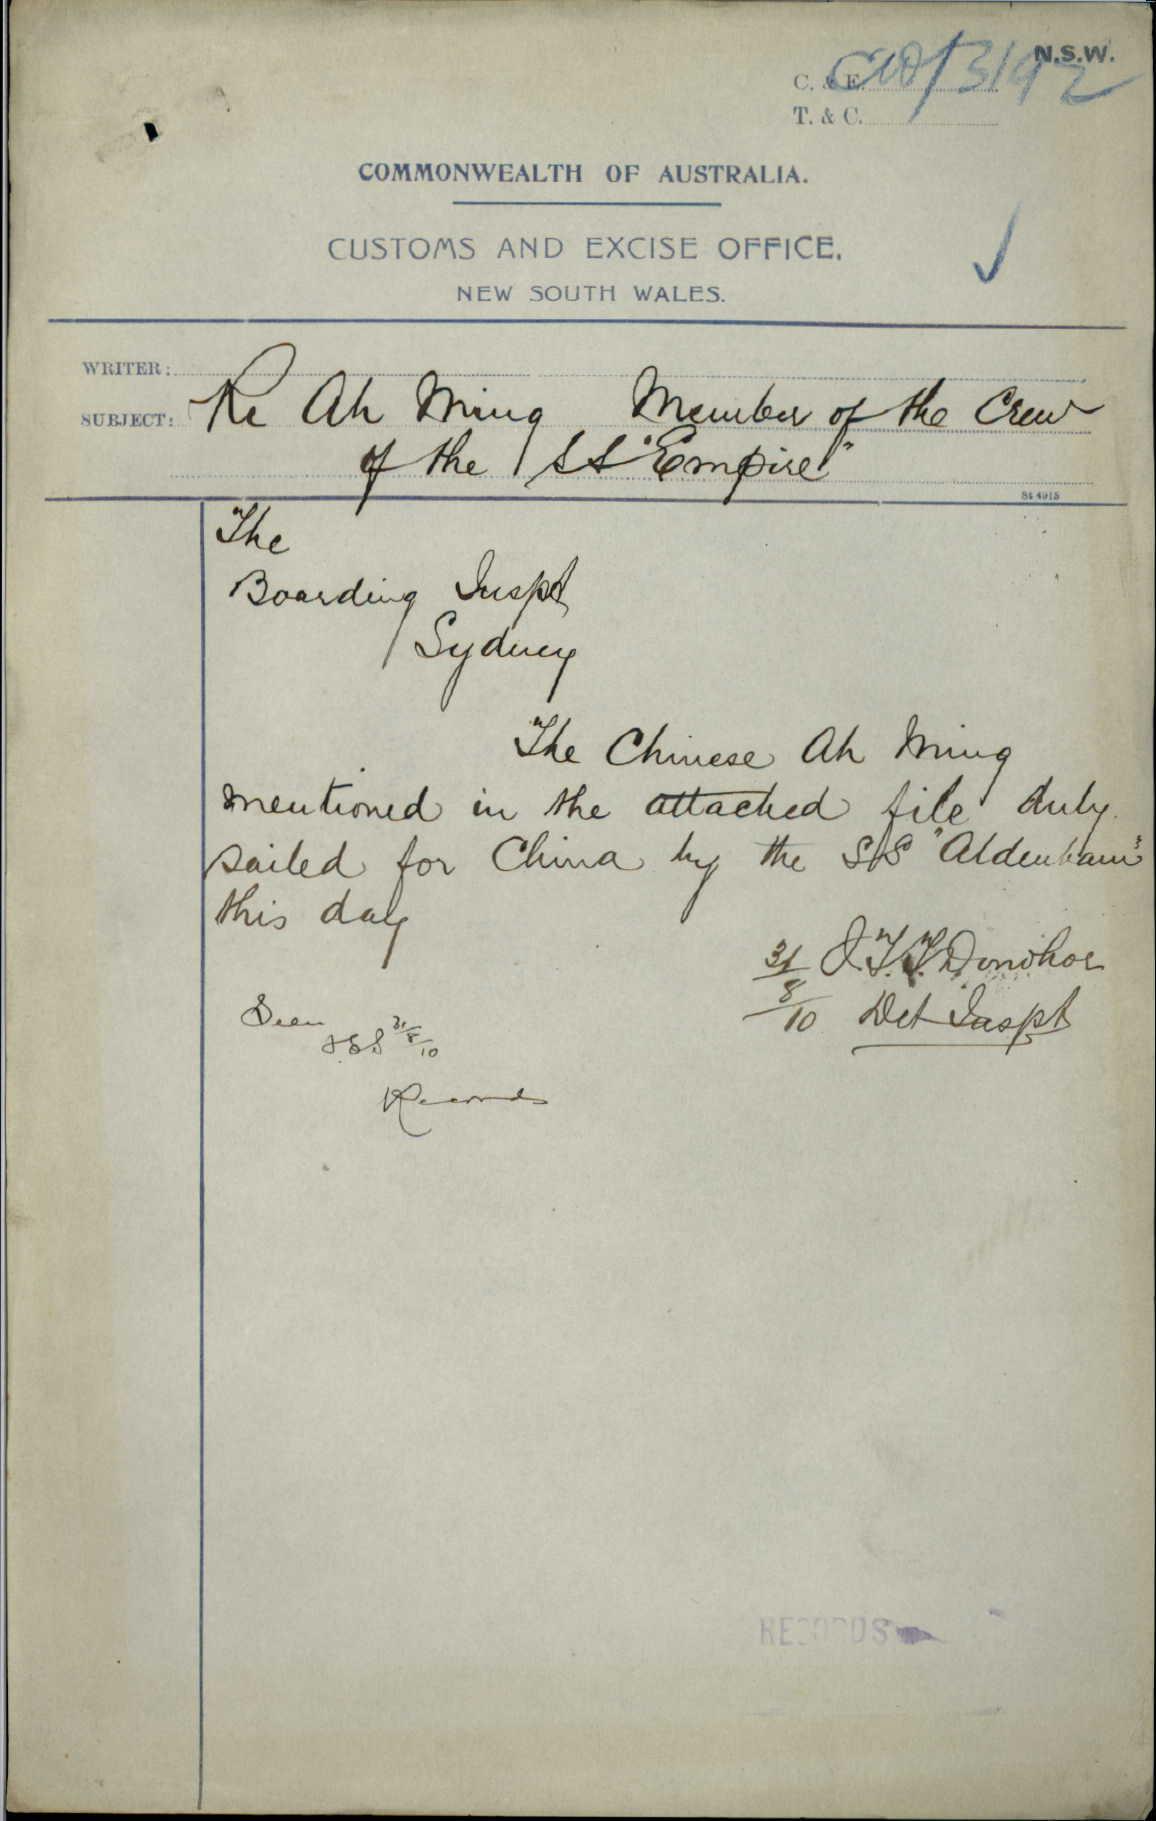 N.S.W.
C. & E. C10/3192
T. & C.
COMMONWEALTH OF AUSTRALIA.
CUSTOMS AND EXCISE OFFICE,
NEW SOUTH WALES.
WRITER:
SUBJECT: Re Ah Ming Member of the Crew
of the SS "Empire"
84 4915
The
Boarding Inspt
Sydney
The Chinese Ah Ming
mentioned in the attached file duly
sailed for China by the SS "Aldenham"
this day
31/8/10 J.T.T. Donohoe
Det Inspt
Seen
31/8/10
Records
RECORDS